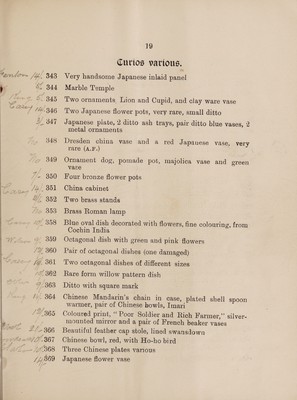 19
Curios various.
343 Very handsome Japanese inlaid panel
344 Marble Temple
345 Two ornaments Lion and Cupid, and clay ware vase
346 Two Japanese flower pots, very rare, small ditto
347 Japanese plate, 2 ditto ash trays, pair ditto blue vases, 2
metal ornaments
348 Dresden china vase and a red Japanese vase, very
rare (A.F.)
349 Ornament dog, pomade pot, majolica vase and green
vase
350 Four bronze flower pots
351 China cabinet
352 Two brass stands
353 Brass Roman lamp
358 Blue oval dish decorated with flowers, fine colouring, from
Cochin India
359 Octagonal dish with green and pink flowers
360 Pair of octagonal dishes (one damaged)
361 Two octagonal dishes of different sizes
362 Rare form willow pattern dish
363 Ditto with square mark
364 Chinese Mandarin's chain in case, plated shell spoon
warmer, pair of Chinese bowls, Imari
365 Coloured print, "Poor Soldier and Rich Farmer," silver-
mounted mirror and a pair of French beaker vases
366 Beautiful feather cap stole, lined swansdown
367 Chinese bowl, red, with Ho-ho bird
368 Three Chinese plates various
369 Japanese flower vase